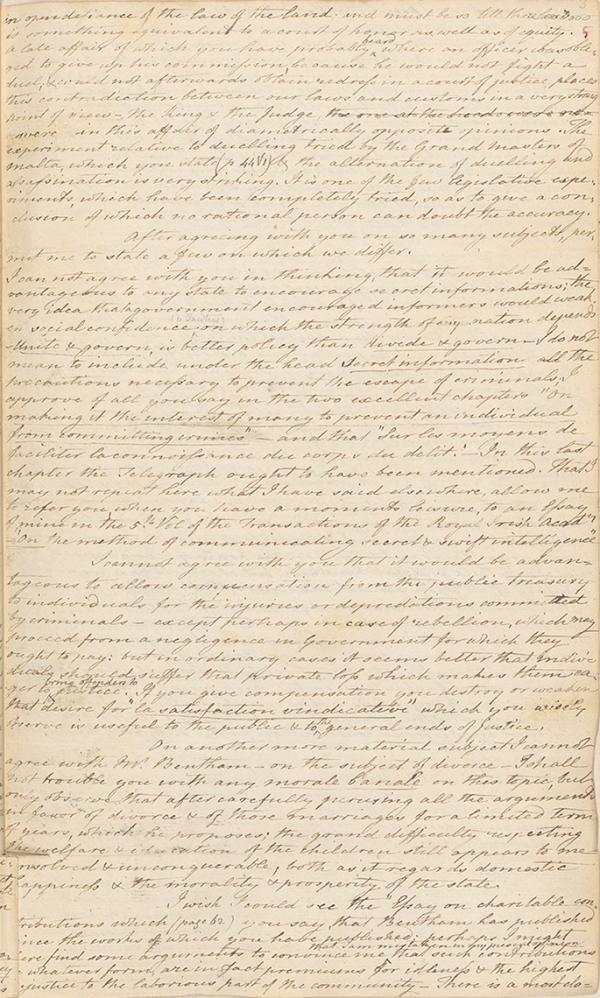 in open defiance of the law of the land. and must be so till there
is something equivalent to a court of honor as well as of equity. 5
a late affair of which you have probably heard where an officer was obli-
ged to give up his commission, because he would not fight a
duel, & could not afterwards obtain redress in a court of justice, places
this contradiction between our laws and customs in a very strong
point of view – the King & the Judge,
were in this affair of diametrically opposite opinions. The
experiment relative to duelling tried by the Grand Masters of
Malta, which you state (p 44 V1) & the alternation of duelling and
assassination is very striking. It is one of the few legislative expe-
riments which have been completely tried, so as to give a con-
clusion of which no rational person can doubt the accuracy.
After agreeing with you on so many subjects, per-
mit me to state a few on which we differ.
I can not agree with you in thinking, that it would be ad-
vantageous to any state to encourage secret informations; the
very idea that a government encouraged informers would weak-
en social confidence on which the strength of any nation depends
– Unite & govern, is better policy than divide & govern – I do not
mean to include under the head secret information all the
precautions necessary to prevent the escape of criminals; I
approve of all you say in the two excellent chapters "On
making it the interest of many to prevent an individual
from committing crimes" – and that "Sur les moyens de
faciliter la connoissance du corps du delit." In this last
chapter the Telegraph ought to have been mentioned. That I
may not repeat here what I have said elsewhere, allow me
to refer you, when you have a moments leisure, to an Essay
of mine in the 5th Vol of the Transactions of the Royal Irish Acady
"On the method of communicating secret & swift intelligence
I cannot agree with you that it would be advan-
tageous to allow compensation from the public treasury
to individuals for the injuries or depredations committed
by criminals – except perhaps in case of rebellion, which may
proceed from a negligence in Government for which they
ought to pay: but in ordinary cases it seems better that indivi-
dually should suffer that private loss which makes them ea-
ger to bring offenders to justice. If you give compensation you destroy or weaken
that desire for "la satisfaction vindicative" which you wisely
observe is useful to the public & to the general ends of justice.
On another more material subject I cannot
agree with Mr. Bentham – on the subject of divorce – I shall
not trouble you with any morale banale on this topic, but
only observe that after carefully perusing all the arguments
in favor of divorce & of those marriages for a limited term
of years, which he proposes; the grand difficulty respecting
the welfare & education of the children still appears to me
unsolved & unconquerable, both as it regards domestic
happiness & the morality & prosperity of the state.
I wish I could see the "Essay on charitable con-
tributions which (page 62) you say that Bentham has published
since the works of which you have published: perhaps I might
there find some arguments to convince me that I am mistaken in my that such contributions
in whatever form, are in fact premiums for idleness & the highest
injustice to the laborious part of the community – There is a most do-